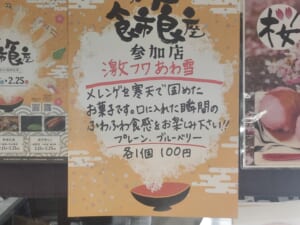 食市食座
参加店
激フワあわ雪
メレンゲを寒天で固めた
お菓子です。口に入れた瞬間の
ふわふわ食感をお楽しみ下さい!!
プレーン、ブルーベリー
各1個 100円
2.25
桜